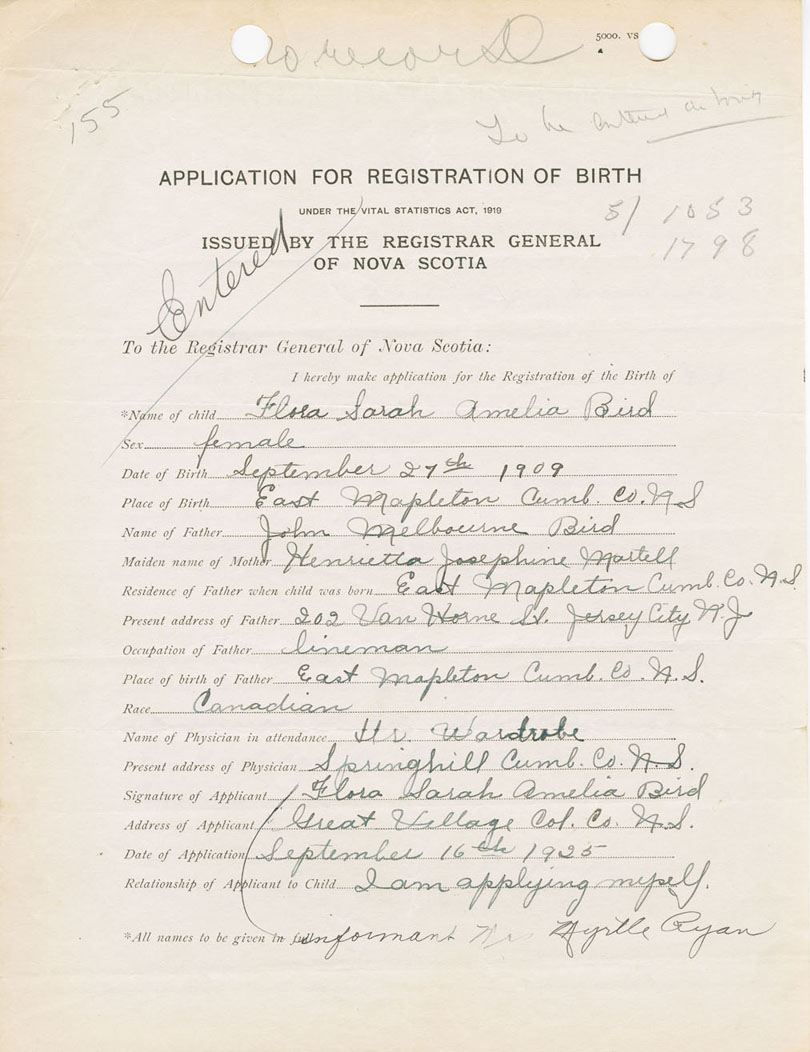 no record
5000. VS
155
To be entered as twins
APPLICATION FOR REGISTRATION OF BIRTH
UNDER THE VITAL STATISTICS ACT, 1919
5/ 1053
ISSUED BY THE REGISTRAR GENERAL
1798
OF NOVA SCOTIA
Entered
To the Registrar General of Nova Scotia:
I hereby make application for the Registration of the Birth of
*Name of child Flora Sarah Amelia Bird
Sex female
Date of Birth September 27th 1909
Place of Birth East Mapleton Cumb. Co. N S
Name of Father John Melbourne Bird
Maiden name of Mother Henrietta Josephine Martell
Residence of Father when child was born East Mapleton Cumb. Co. N.S.
Present address of Father 202 Van Horne St. Jersey City N.J
Occupation of Father lineman
Place of birth of Father East Mapleton Cumb. Co. N.S.
Race Canadian
Name of Physician in attendance Dr. Wardrobe
Present address of Physician Springhill Cumb. Co. N.S.
Signature of Applicant Flora Sarah Amelia Bird
Address of Applicant Great Village Col. Co. N.S.
Date of Application September 16th 1925
Relationship of Applicant to Child I am applying myself.
*All names to be given in full informant Myrtle Ryan